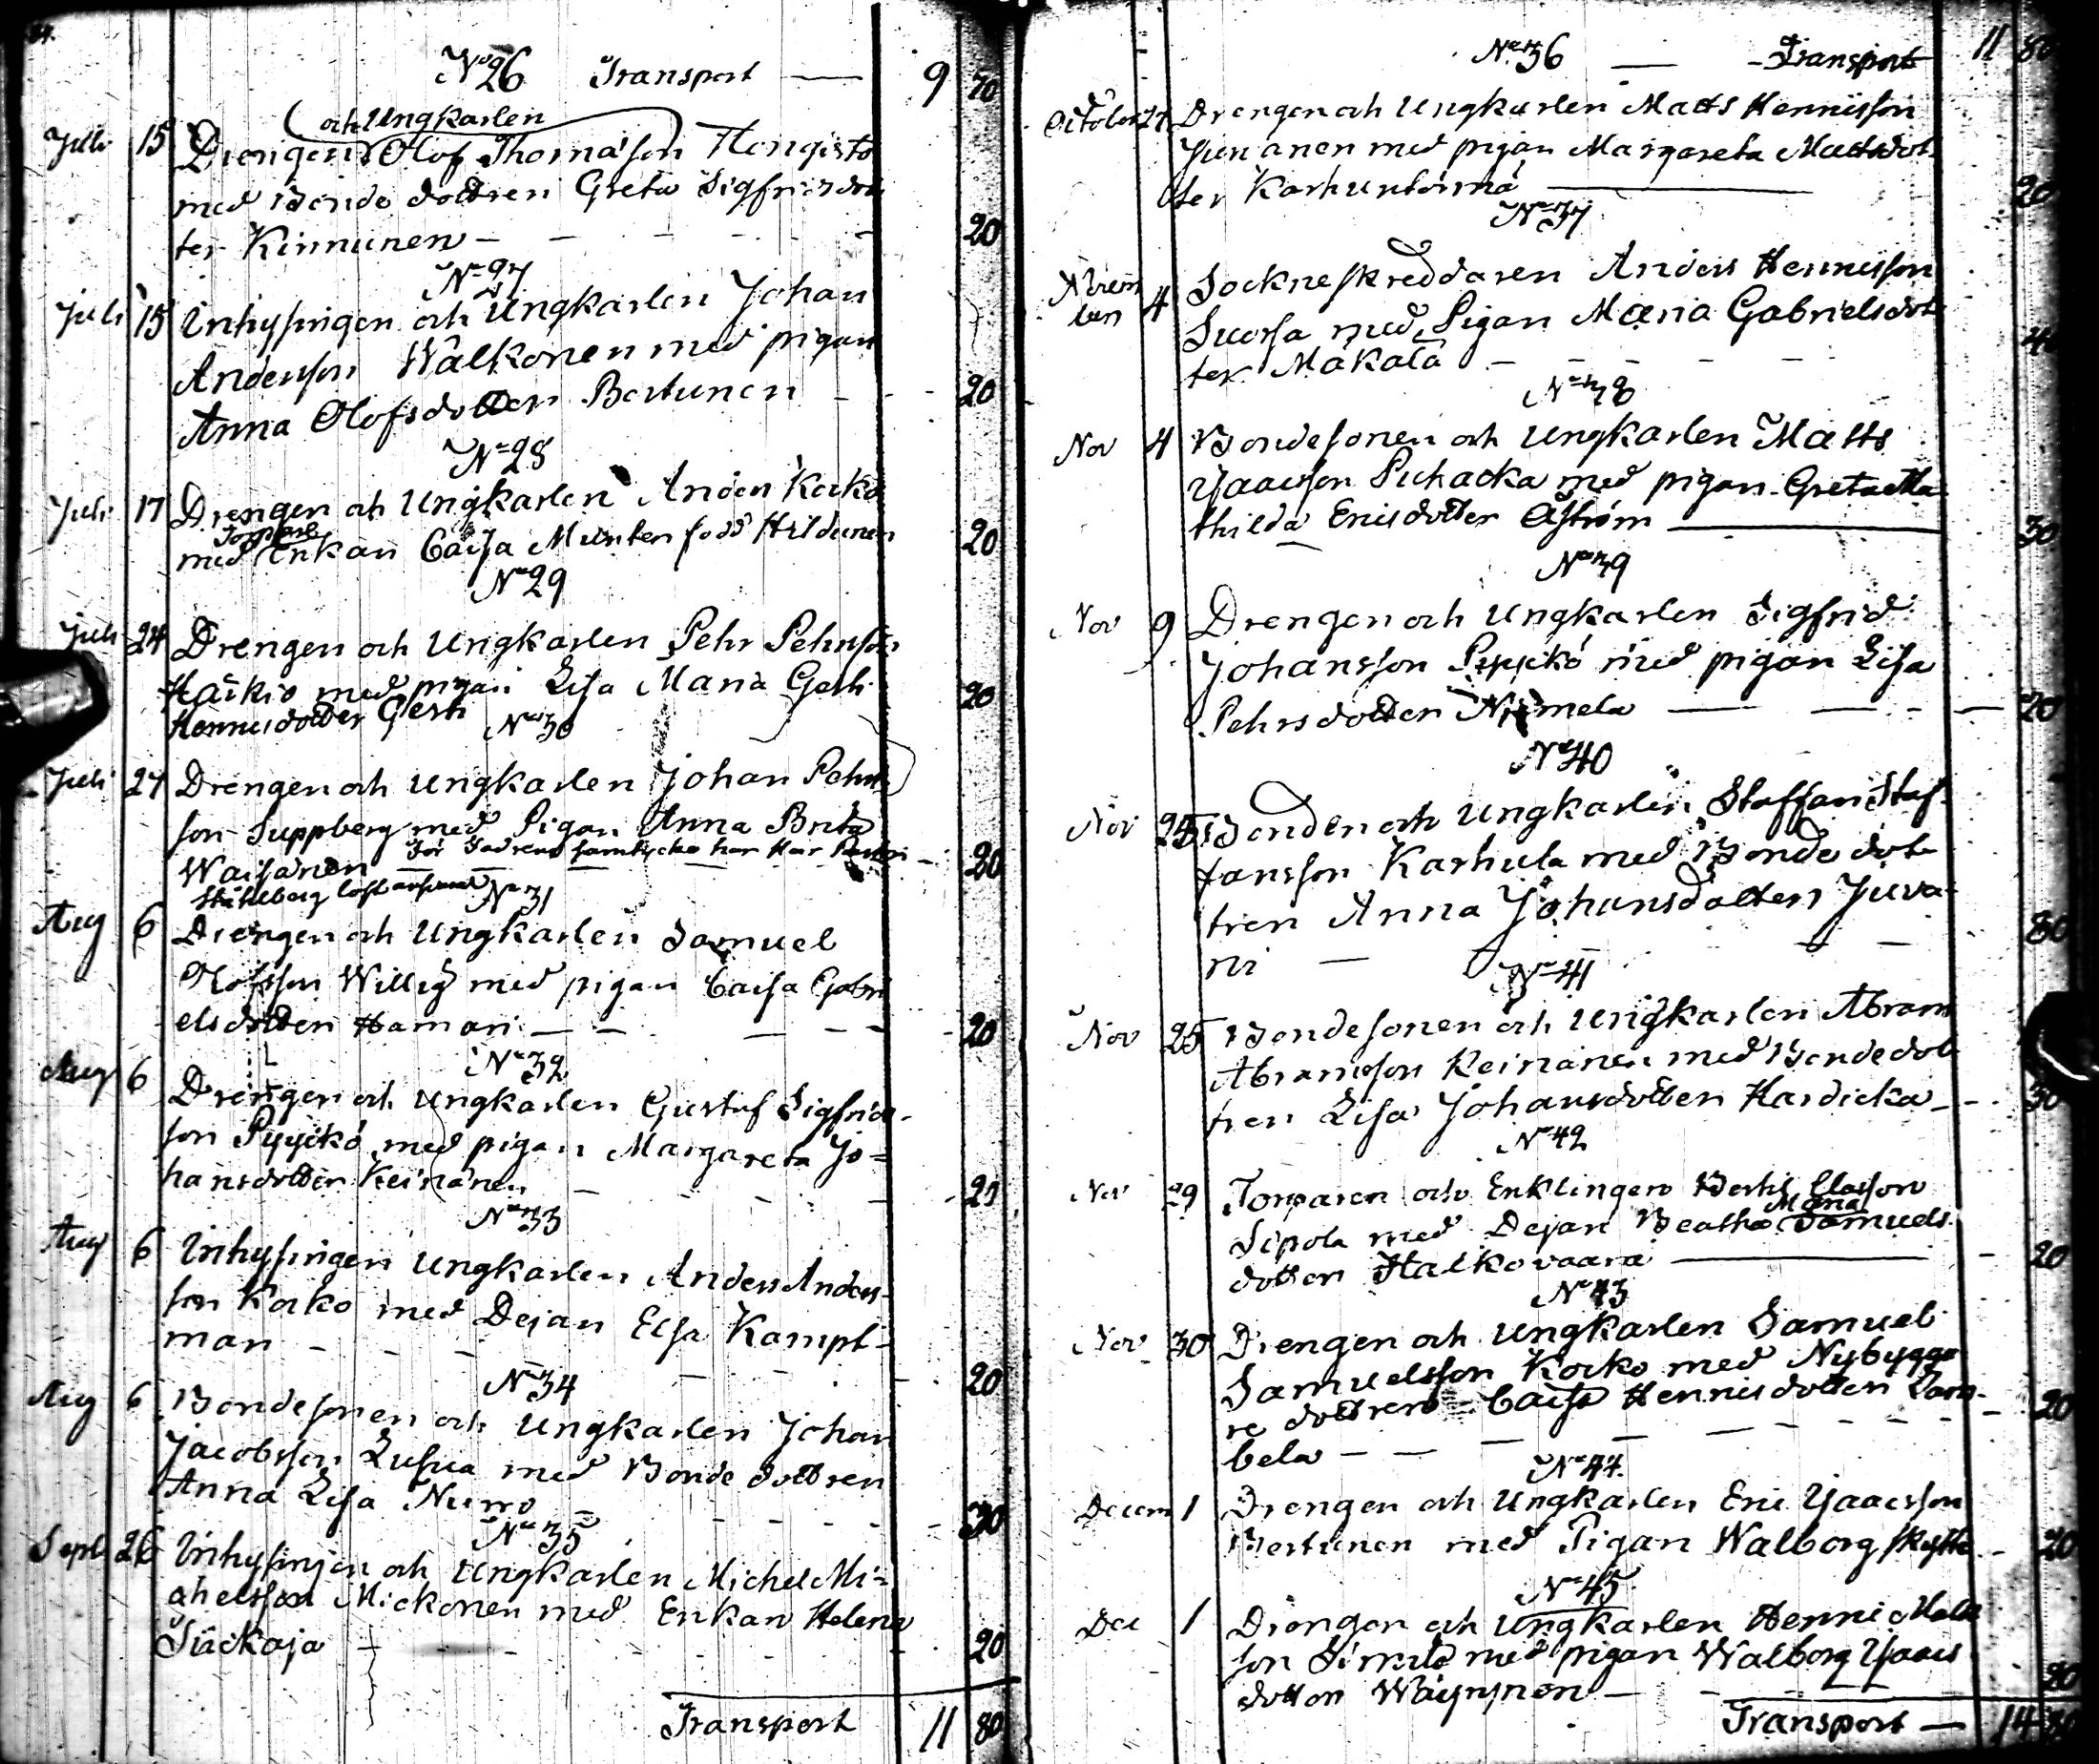 No 26 Transport — 9 70
och Ungkarlen
Juli 15 Drengen Olof Thomasson Hengisto
med Bonde dottren Greta Sigfridsdot
ter Kinnunen — 20
No 27
Juli 15 Inhysingen och Ungkarlen Johan
Andersson Walkonen med pigan
Anna Olofsdotter Bertunen — 20
No 28
Juli 17 Drengen och Ungkarlen Anders Kocko
med Enkan Caisa Munter född Hildunen 20
No 29
Juli 24 Drengen och Ungkarlen Pehr Pehrsson
Härkio med pigan Lisa Maria Gesti 20
Hennersdotter Gesti
No 30
Juli 27 Drengen och Ungkarlen Johan Pehrs
son Suppberg med Pigan Anna Brita
Waisänen — 20
No 31
Aug 6 Drengen och Ungkarlen Samuel
Olofsson Willig med pigan Caisa Gabri
elsdotter Hamari — 20
No 32
Aug 6 Drengen och Ungkarlen Gustaf Sigfrids-
son Pyyckö med pigan Margareta Jo=
hansdotter Keinänen — 20
No 33
Aug 6 Inhysingen Ungkarlen Anders Anders-
son Kocko med Dejan Elsa Kampf-
man — 20
No 34
Aug 6 Bondesonen och Ungkarlen Johan
Jacobsson Lusua med Bonde dottren
Anna Lisa Numo — 30
No 35
Sept 26 Inhysingen och Ungkarlen Michel Mi=
chelsson Mickonen med Enkan Helena
Siickaja 20
Transport 11 80
No 36 — Transport 11 80
October 27 Drengen och Ungkarlen Matts Hennisson
Junanen med pigan Margareta Mattsdot
ter Karhuntörmä — 20
No 37
Novem
ber 4 Sockneskreddaren Anders Hennisson
Suorsa med Pigan Maria Gabrielsdot
ter Mäkälä — 40
No 38
Nov 4 Bondesonen och Ungkarlen Matts
Isaacsson Puhacka med pigan Greta Ma
thilda Ericsdotter Åström — 30
No 39
Nov 9 Drengen och Ungkarlen Sigfrid
Johansson Pyyckö med pigan Lisa
Pehrsdotter Niemela — 20
No 40
Nov 25 Bonden och Ungkarlen Staffan Staf-
fansson Karhula med Bonde dot
tren Anna Johansdotter Juva-
ni — 80
No 41
Nov 25 Bondesonen och Ungkarlen Abram
Abramsson Keinänen med Bondedot
tren Lisa Johansdotter Hardicka — 30
No 42
Nov 29 Torparen och Enklingen Bertil Classon
Maria
Sipola med Dejan Beatha Samuels
dotter Halkovaara — 20
No 43
Nov 30 Drengen och Ungkarlen Samuel
Samuelsson Kocko med Nybygga
re dottren Caisa Hennisdotter Lam- 20
bela —
No 44.
Decem 1 Drengen och Ungkarlen Eric Isaacsson
Bertunen med Pigan Walborg Skytte — 20
No 45
Dec 1 Drengen och Ungkarlen Henric Matts
son Sirniö med pigan Walborg Isaacs
dotter Wäyrynen — 20
Transport — 14 80